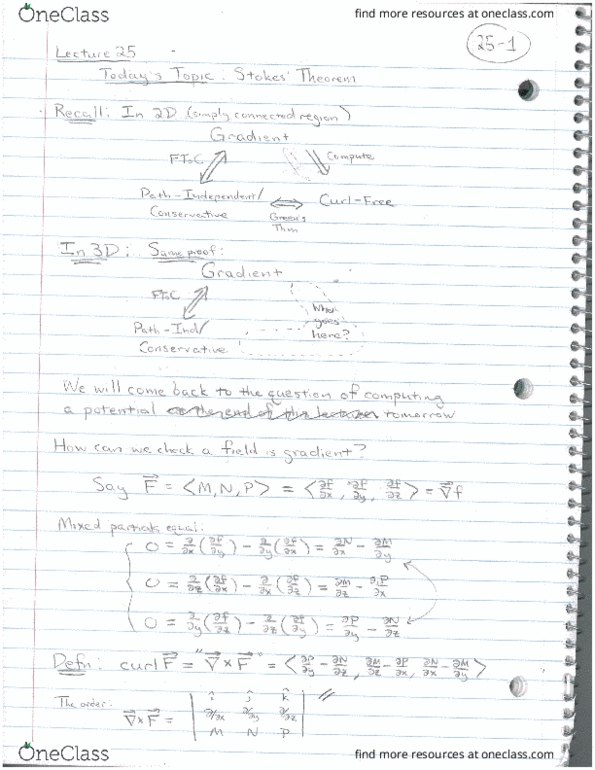 OneClass
find more resources at oneclass.com
25-1
Lecture 25
Today's Topic: Stokes' Theorem
Recall: In 2D (simply connected region)
Gradient
FToC
Compute
Path-Independent/
Conservative
Curl-Free
Green's
Thm
In 3D: Same proof:
Gradient
FToC
Path-Ind/
Conservative
What
goes
here?
We will come back to the question of computing
a potential tomorrow
How can we check a field is gradient?
Say F⃗ = ⟨M, N, P⟩ = ⟨∂f/∂x, ∂f/∂y, ∂f/∂z⟩ = ∇⃗f
Mixed partials equal:
0 = ∂/∂x (∂f/∂y) - ∂/∂y (∂f/∂x) = ∂N/∂x - ∂M/∂y
0 = ∂/∂z (∂f/∂x) - ∂/∂x (∂f/∂z) = ∂M/∂z - ∂P/∂x
0 = ∂/∂y (∂f/∂z) - ∂/∂z (∂f/∂y) = ∂P/∂y - ∂N/∂z
Defn: curl F⃗ = "∇⃗ × F⃗" = ⟨∂P/∂y - ∂N/∂z, ∂M/∂z - ∂P/∂x, ∂N/∂x - ∂M/∂y⟩
The order:
∇⃗ × F⃗ = | î ĵ k̂
∂/∂x ∂/∂y ∂/∂z
M N P |
OneClass
find more resources at oneclass.com